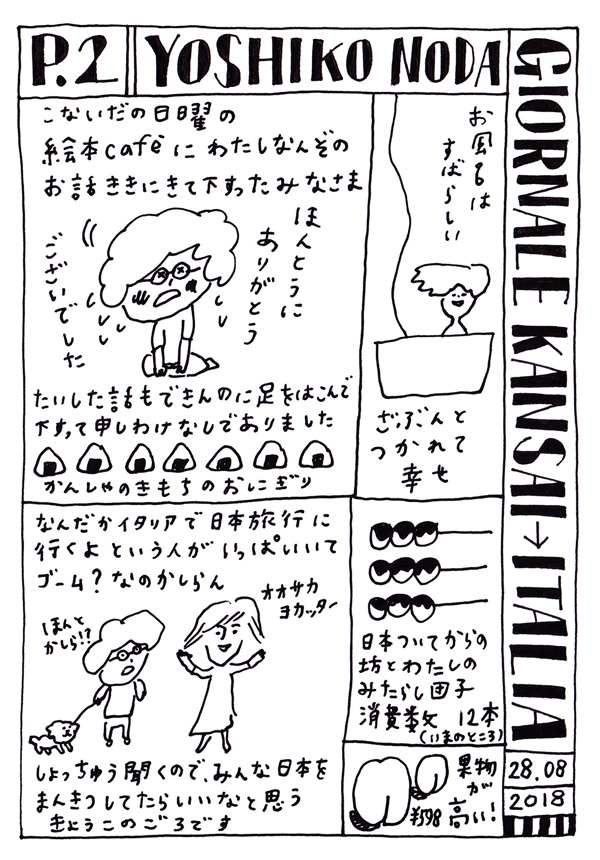 P.2 YOSHIKO NODA
GIORNALE KANSAI→ITALIA
こないだの日曜の
絵本caféにわたしなんぞの
お話ききにきて下すったみなさま
ほんとうに
ありがとう
ございでした
たいした話もできんのに足をはこんで
下すって申しわけなしでありました
かんしゃのきもちのおにぎり
お風呂は
すばらしい
ざぶんと
つかれて
幸せ
なんだかイタリアで日本旅行に
行くよという人がいっぱいいて
ブーム?なのかしらん
ほんと
かしら!?
オオサカ
ヨカッター
しょっちゅう聞くので、みんな日本を
まんきつしてたらいいなと思う
きょうこのごろです
日本ついてからの
坊とわたしの
みたらし団子
消費数 12本
(いまのところ)
果物
が
高い!
¥598
28.08
2018